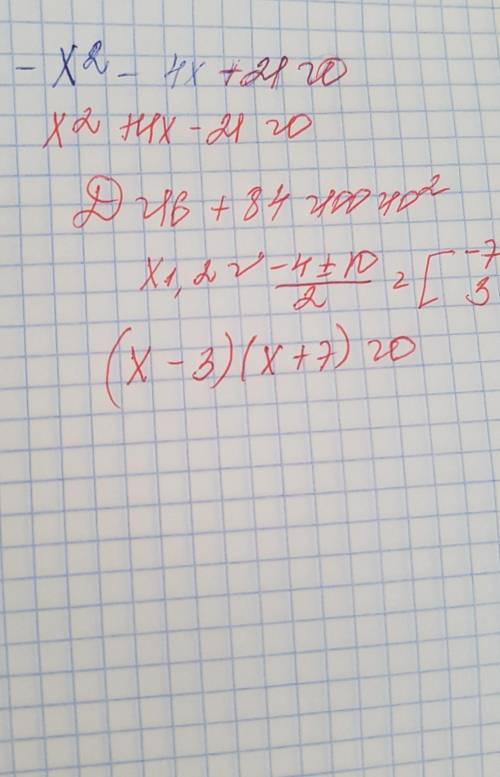 - x² - 4x + 21 = 0
x² + 4x - 21 = 0
Д = 16 + 84 = 100 = 10²
x1,2 = -4 ± 10 / 2 = [ -7 3
(x - 3)(x + 7) = 0